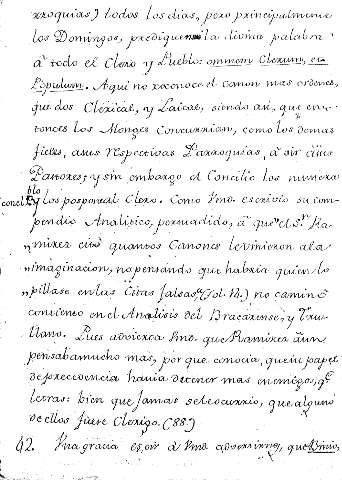 rroquias) todos los dias, pero principalmente
los Domingos, prediquen la divina palabra
à todo el Clero y Pueblo: omnem Clerum, et
Populum. Aqui no reconoce el Canon mas ordenes,
que dos Clerical, y Laical, siendo asi, que en-
tonces los Monges concurrian, como los demas
fieles, a sus respectivas Parroquias, à oir à sus
Pastores, y sin embargo el Concilio los numera
y los pospone al Clero. Como Vmd. escrivio su com-
pendio Analitico, persuadido, à que el Sr. Ra-
mirez citò quantos Canones le vinieron a la
imaginacion, no pensando que habria quien lo
pillase en las Citas falsas, (fol. 18.) no caminò
con tiento en el Analisis del Bracarense, y Tru-
llano. Pues advierta Vmd. que Ramirez aun
pensaba mucho mas, por que conocia, que su papel
de precedencia havia de tener mas enemigos, qe.
letras: bien que jamas se le ocurrio, que alguno
de ellos fuere Clerigo. (88.)
92. Una gracia es, oir à Vmd. que